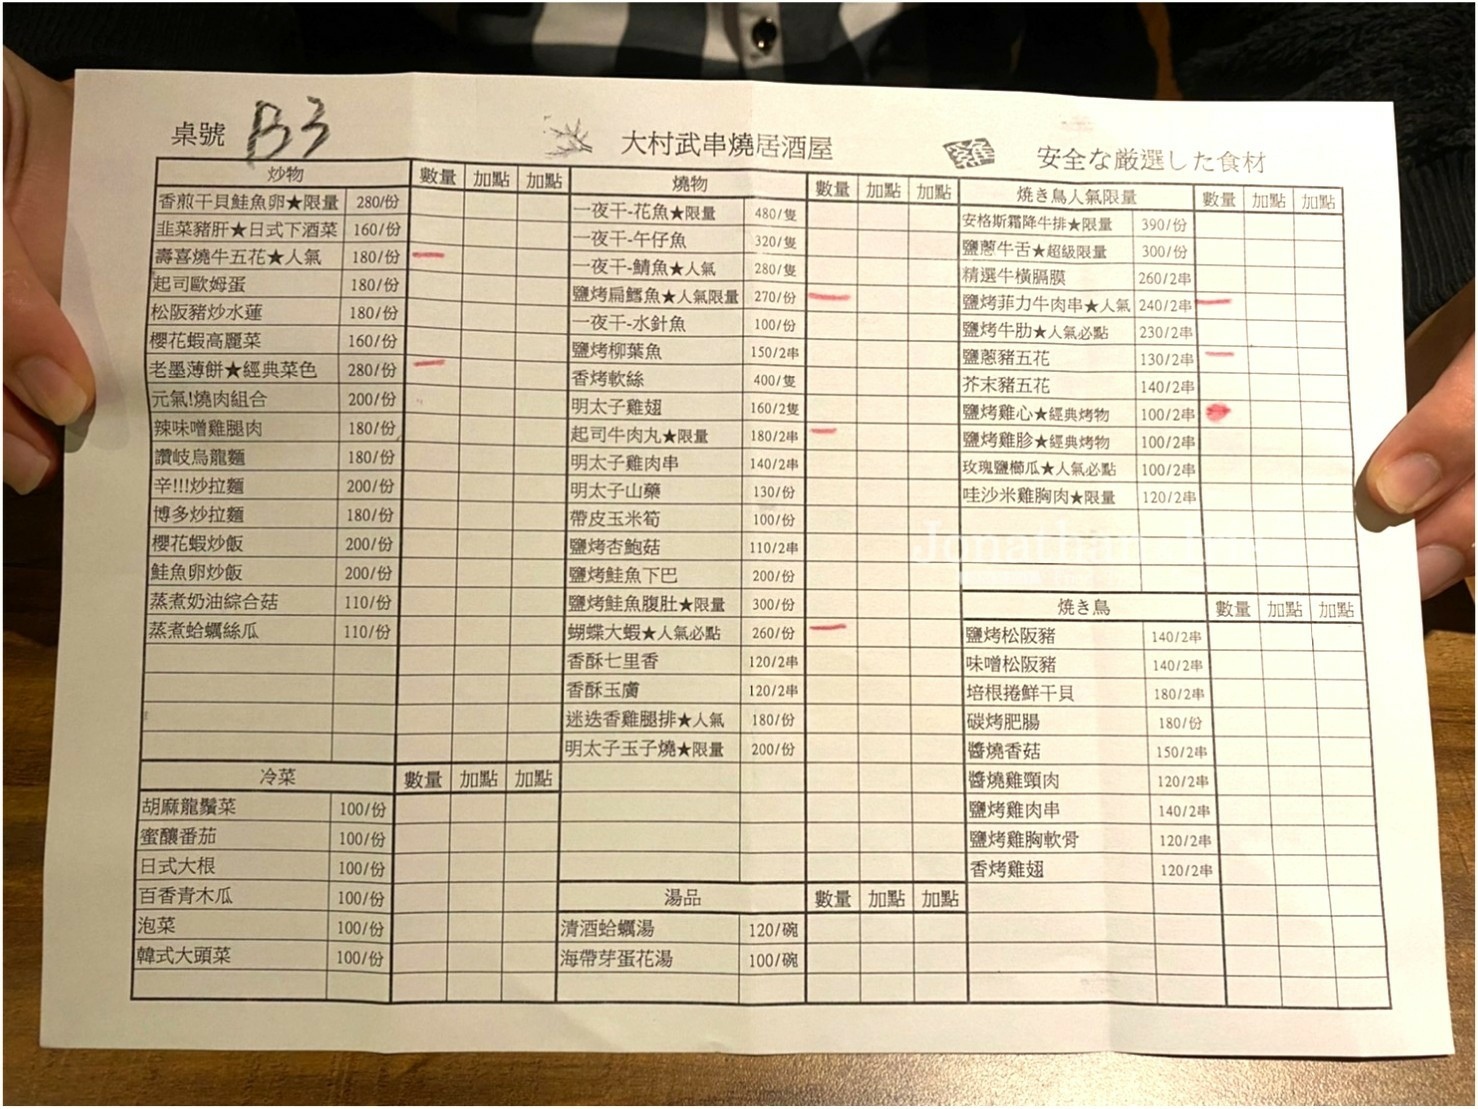 桌號 B3
大村武串燒居酒屋
雞
安全な厳選した食材
炒物 數量 加點 加點
香煎干貝鮭魚卵★限量 280/份
韭菜豬肝★日式下酒菜 160/份
壽喜燒牛五花★人氣 180/份
起司歐姆蛋 180/份
松阪豬炒水蓮 180/份
櫻花蝦高麗菜 160/份
老墨薄餅★經典菜色 280/份
元氣!燒肉組合 200/份
辣味噌雞腿肉 180/份
讚岐烏龍麵 180/份
辛!!!炒拉麵 200/份
博多炒拉麵 180/份
櫻花蝦炒飯 200/份
鮭魚卵炒飯 200/份
蒸煮奶油綜合菇 110/份
蒸煮蛤蠣絲瓜 110/份
冷菜 數量 加點 加點
胡麻龍鬚菜 100/份
蜜釀番茄 100/份
日式大根 100/份
百香青木瓜 100/份
泡菜 100/份
韓式大頭菜 100/份
燒物 數量 加點 加點
一夜干-花魚★限量 480/隻
一夜干-午仔魚 320/隻
一夜干-鯖魚★人氣 280/隻
鹽烤扁鱈魚★人氣限量 270/份
一夜干-水針魚 100/份
鹽烤柳葉魚 150/2串
香烤軟絲 400/隻
明太子雞翅 160/2隻
起司牛肉丸★限量 180/2串
明太子雞肉串 140/2串
明太子山藥 130/份
帶皮玉米筍 100/份
鹽烤杏鮑菇 110/2串
鹽烤鮭魚下巴 200/份
鹽烤鮭魚腹肚★限量 300/份
蝴蝶大蝦★人氣必點 260/份
香酥七里香 120/2串
香酥玉膚 120/2串
迷迭香雞腿排★人氣 180/份
明太子玉子燒★限量 200/份
湯品 數量 加點 加點
清酒蛤蠣湯 120/碗
海帶芽蛋花湯 100/碗
焼き鳥人氣限量 數量 加點 加點
安格斯霜降牛排★限量 390/份
鹽蔥牛舌★超級限量 300/份
精選牛橫膈膜 260/2串
鹽烤菲力牛肉串★人氣 240/2串
鹽烤牛肋★人氣必點 230/2串
鹽蔥豬五花 130/2串
芥末豬五花 140/2串
鹽烤雞心★經典烤物 100/2串
鹽烤雞胗★經典烤物 100/2串
玫瑰鹽櫛瓜★人氣必點 100/2串
哇沙米雞胸肉★限量 120/2串
焼き鳥 數量 加點 加點
鹽烤松阪豬 140/2串
味噌松阪豬 140/2串
培根捲鮮干貝 180/2串
碳烤肥腸 180/份
醬燒香菇 150/2串
醬燒雞頸肉 120/2串
鹽烤雞肉串 140/2串
鹽烤雞胸軟骨 120/2串
香烤雞翅 120/2串
Jonathan